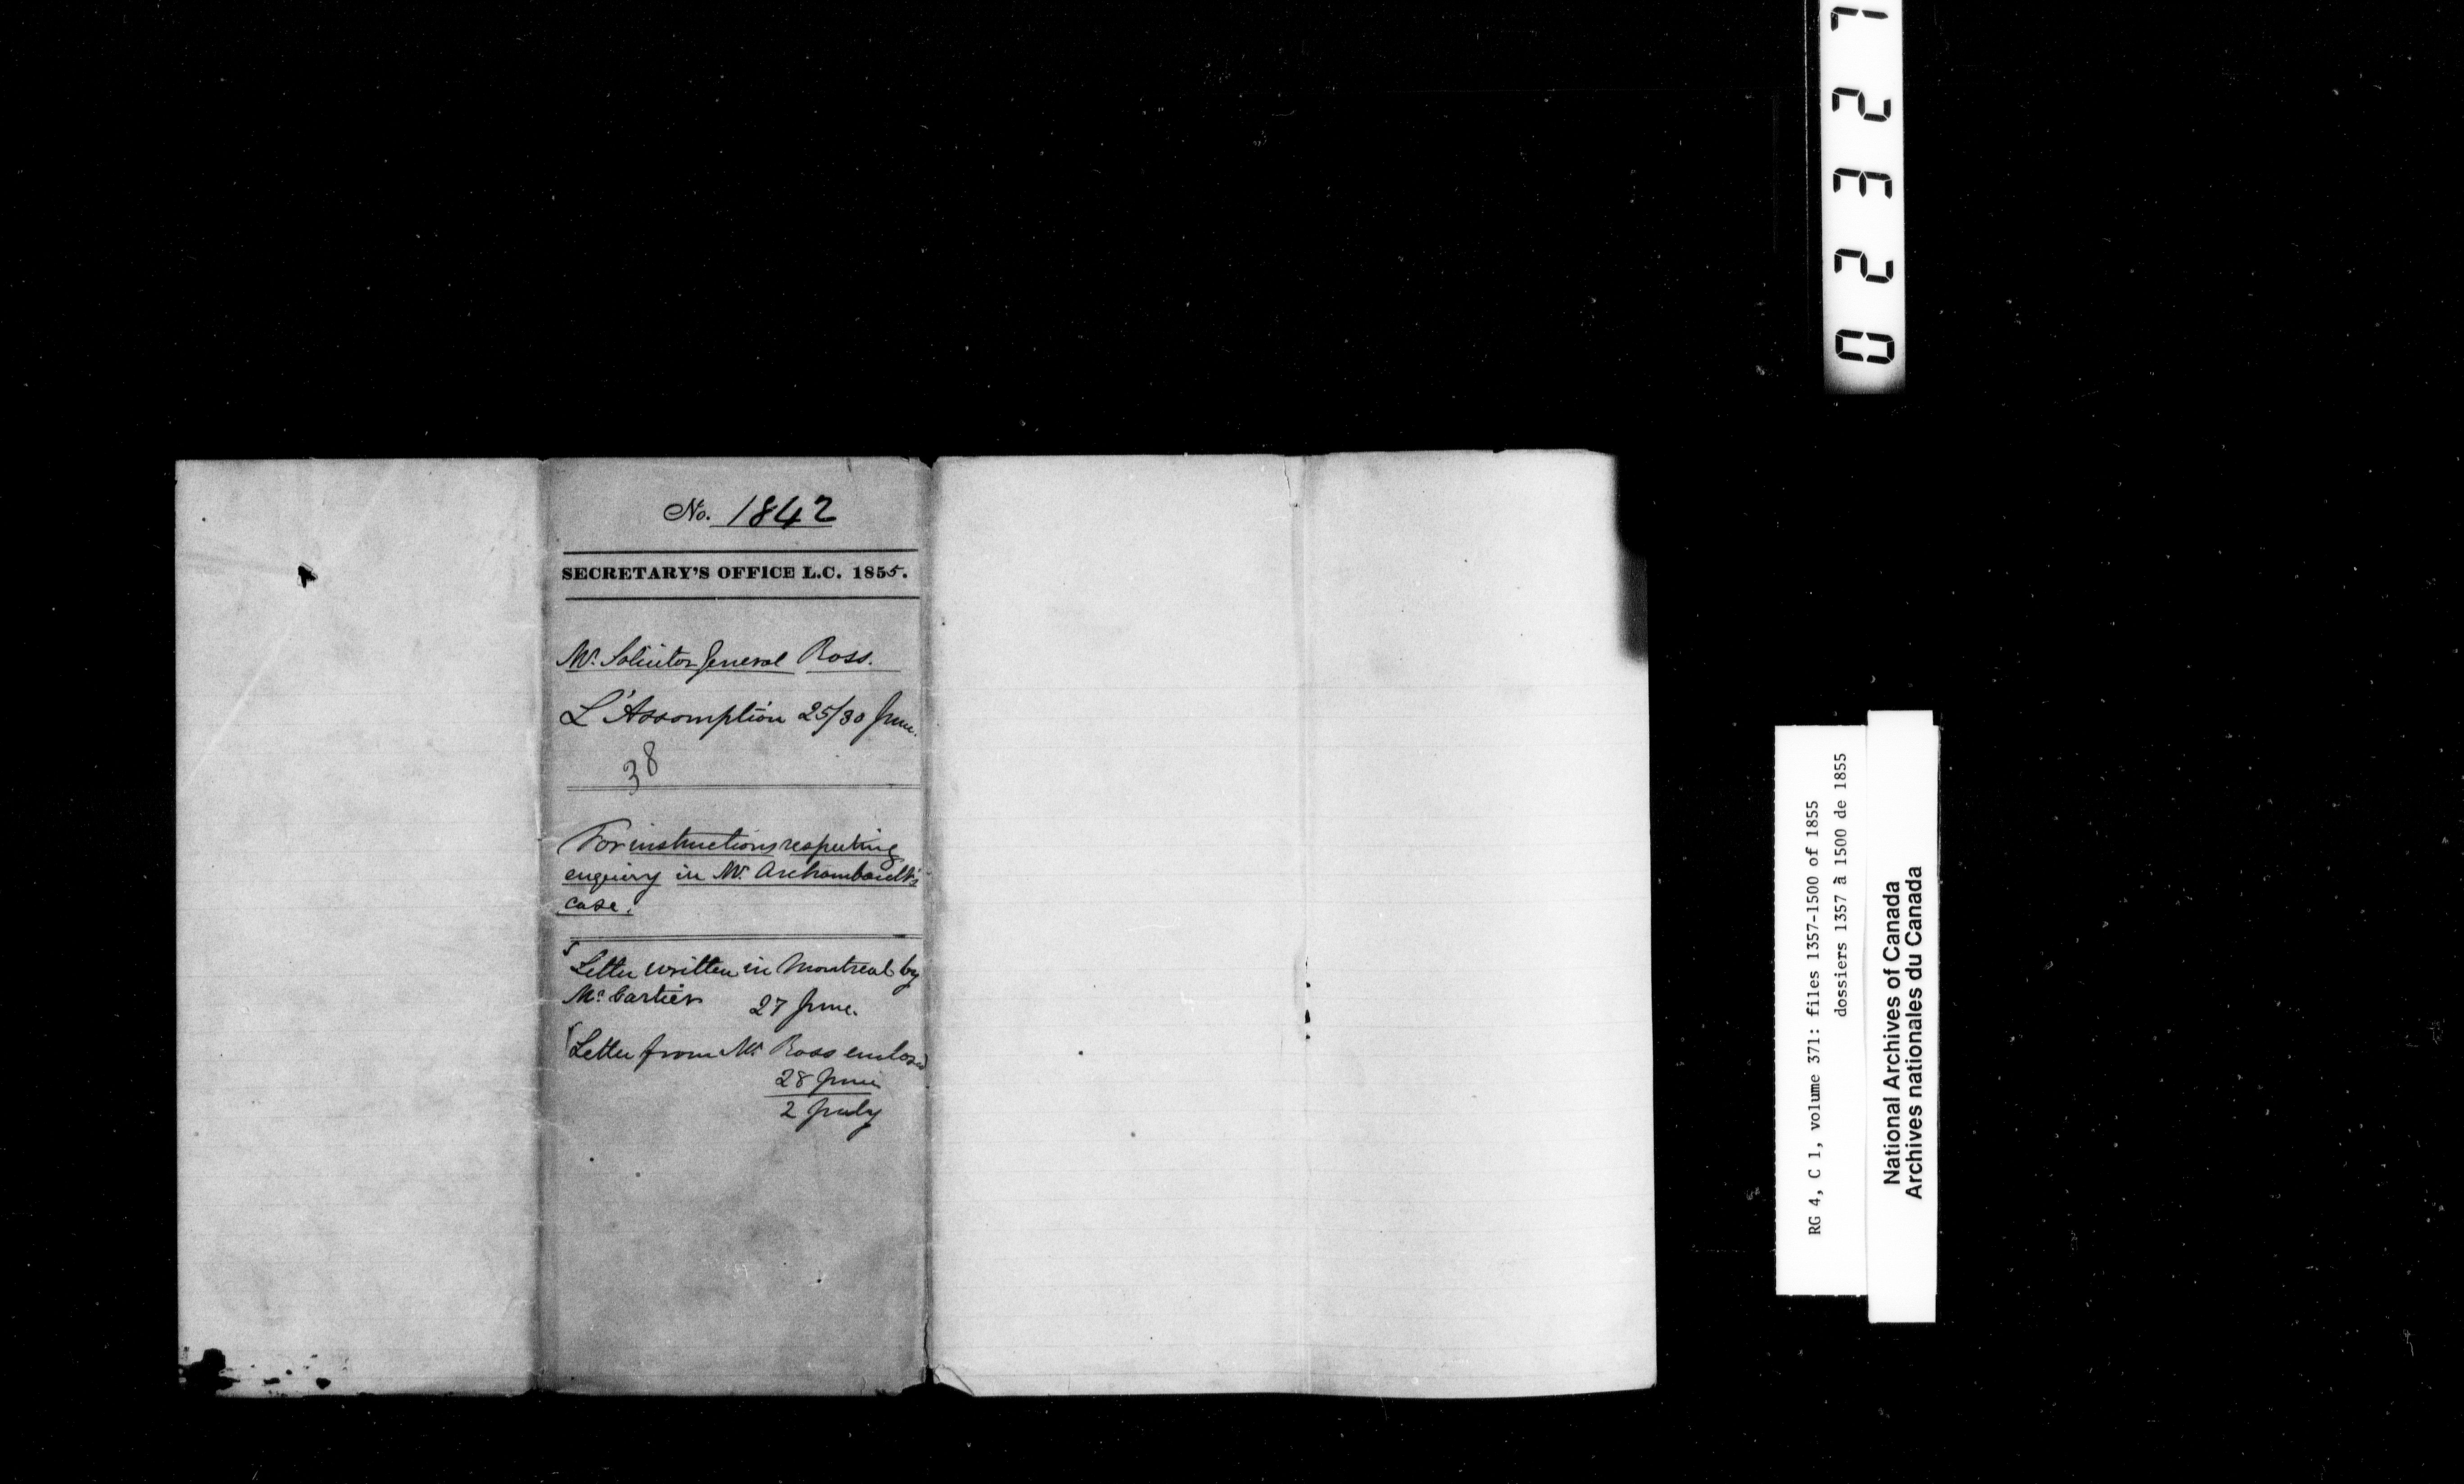 No. 1842
SECRETARY'S OFFICE L.C. 1855.
Mr. Solicitor General Ross.
L'Assomption 25/30 June.
38
For instructions respecting
enquiry in Mr. Archambault's
case.
Letter written in Montreal by
Mr Cartier 27 June.
Letter from Mr. Ross enclosed
28 June
2 July
02327
RG 4, C 1, volume 371: files 1357-1500 of 1855
dossiers 1357 à 1500 de 1855
National Archives of Canada
Archives nationales du Canada